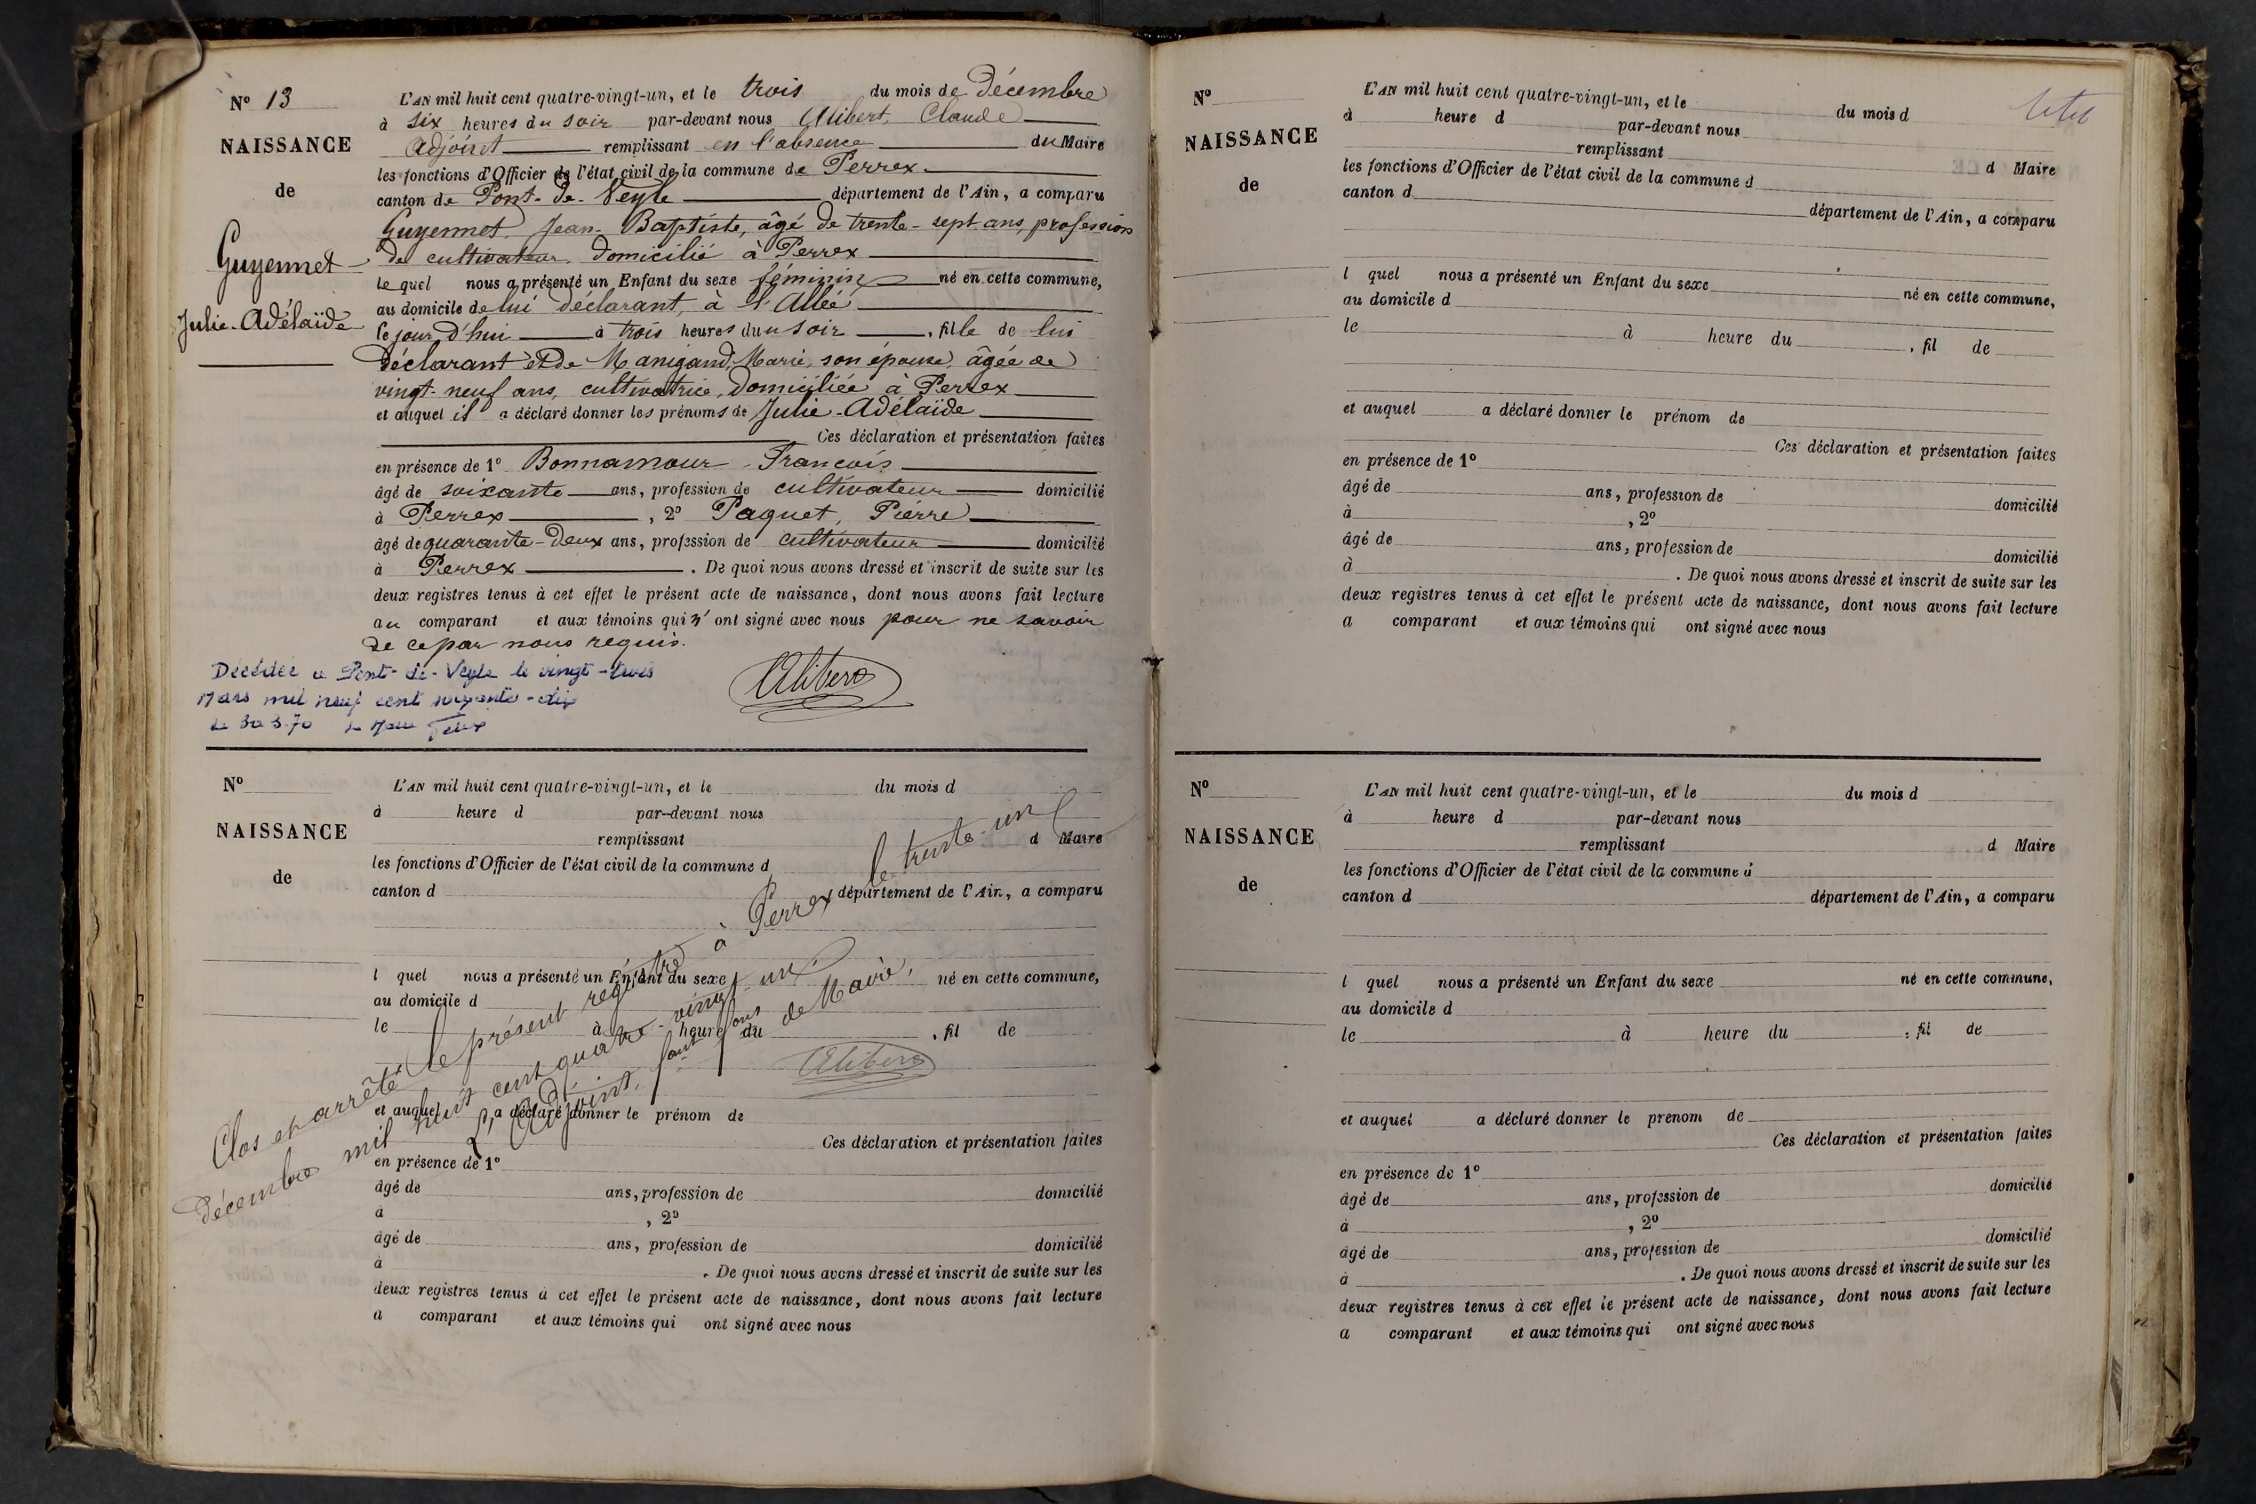 N° 13
NAISSANCE
de
Guyennet
Julie-Adélaïde
L'AN mil huit cent quatre-vingt-un, et le trois du mois de Décembre
à six heures du soir par-devant nous Alibert, Claude
Adjoint remplissant en l'absence du Maire
les fonctions d'Officier de l'état civil de la commune de Perrex
canton de Pont-de-Veyle département de l'Ain, a comparu
Guyennet, Jean-Baptiste, âgé de trente-sept ans, profession
de cultivateur, domicilié à Perrex
lequel nous a présenté un Enfant du sexe féminin né en cette commune,
au domicile de lui déclarant, à l'Allée
le jour d'hui à trois heures du soir, fille de lui
déclarant et de Manigand, Marie, son épouse, âgée de
vingt-neuf ans, cultivatrice, domiciliée à Perrex
et auquel il a déclaré donner les prénoms de Julie-Adélaïde
Ces déclaration et présentation faites
en présence de 1° Bonnamour, François
âgé de soixante ans, profession de cultivateur domicilié
à Perrex, 2° Paquet, Pierre
âgé de quarante-deux ans, profession de cultivateur domicilié
à Perrex. De quoi nous avons dressé et inscrit de suite sur les
deux registres tenus à cet effet le présent acte de naissance, dont nous avons fait lecture
au comparant et aux témoins qui n'ont signé avec nous pour ne savoir
de ce par nous requis.
Alibert
Décédée à Pont-de-Veyle le vingt-trois
Mars mil neuf cent soixante-dix
Le 30.3.70 Le Maire
N°
NAISSANCE
de
L'AN mil huit cent quatre-vingt-un, et le du mois d
à heure d par-devant nous
remplissant d Maire
les fonctions d'Officier de l'état civil de la commune d
canton d département de l'Ain, a comparu
l quel nous a présenté un Enfant du sexe né en cette commune,
au domicile d
le à heure du , fil de
et auquel a déclaré donner le prénom de
Ces déclaration et présentation faites
en présence de 1°
âgé de ans, profession de domicilié
à , 2°
âgé de ans, profession de domicilié
à . De quoi nous avons dressé et inscrit de suite sur les
deux registres tenus à cet effet le présent acte de naissance, dont nous avons fait lecture
a comparant et aux témoins qui ont signé avec nous
Clos et arrêté le présent registre à Perrex le trente-un
décembre mil huit cent quatre-vingt-un.
L'Adjoint, fons de Maire,
Alibert
N°
NAISSANCE
de
L'AN mil huit cent quatre-vingt-un, et le du mois d
à heure d par-devant nous
remplissant d Maire
les fonctions d'Officier de l'état civil de la commune d
canton d département de l'Ain, a comparu
l quel nous a présenté un Enfant du sexe né en cette commune,
au domicile d
le à heure du , fil de
et auquel a déclaré donner le prénom de
Ces déclaration et présentation faites
en présence de 1°
âgé de ans, profession de domicilié
à , 2°
âgé de ans, profession de domicilié
à . De quoi nous avons dressé et inscrit de suite sur les
deux registres tenus à cet effet le présent acte de naissance, dont nous avons fait lecture
a comparant et aux témoins qui ont signé avec nous
N°
NAISSANCE
de
L'AN mil huit cent quatre-vingt-un, et le du mois d
à heure d par-devant nous
remplissant d Maire
les fonctions d'Officier de l'état civil de la commune d
canton d département de l'Ain, a comparu
l quel nous a présenté un Enfant du sexe né en cette commune,
au domicile d
le à heure du , fil de
et auquel a déclaré donner le prenom de
Ces déclaration et présentation faites
en présence de 1°
âgé de ans, profession de domicilié
à , 2°
âgé de ans, profession de domicilié
à . De quoi nous avons dressé et inscrit de suite sur les
deux registres tenus à cet effet le présent acte de naissance, dont nous avons fait lecture
a comparant et aux témoins qui ont signé avec nous